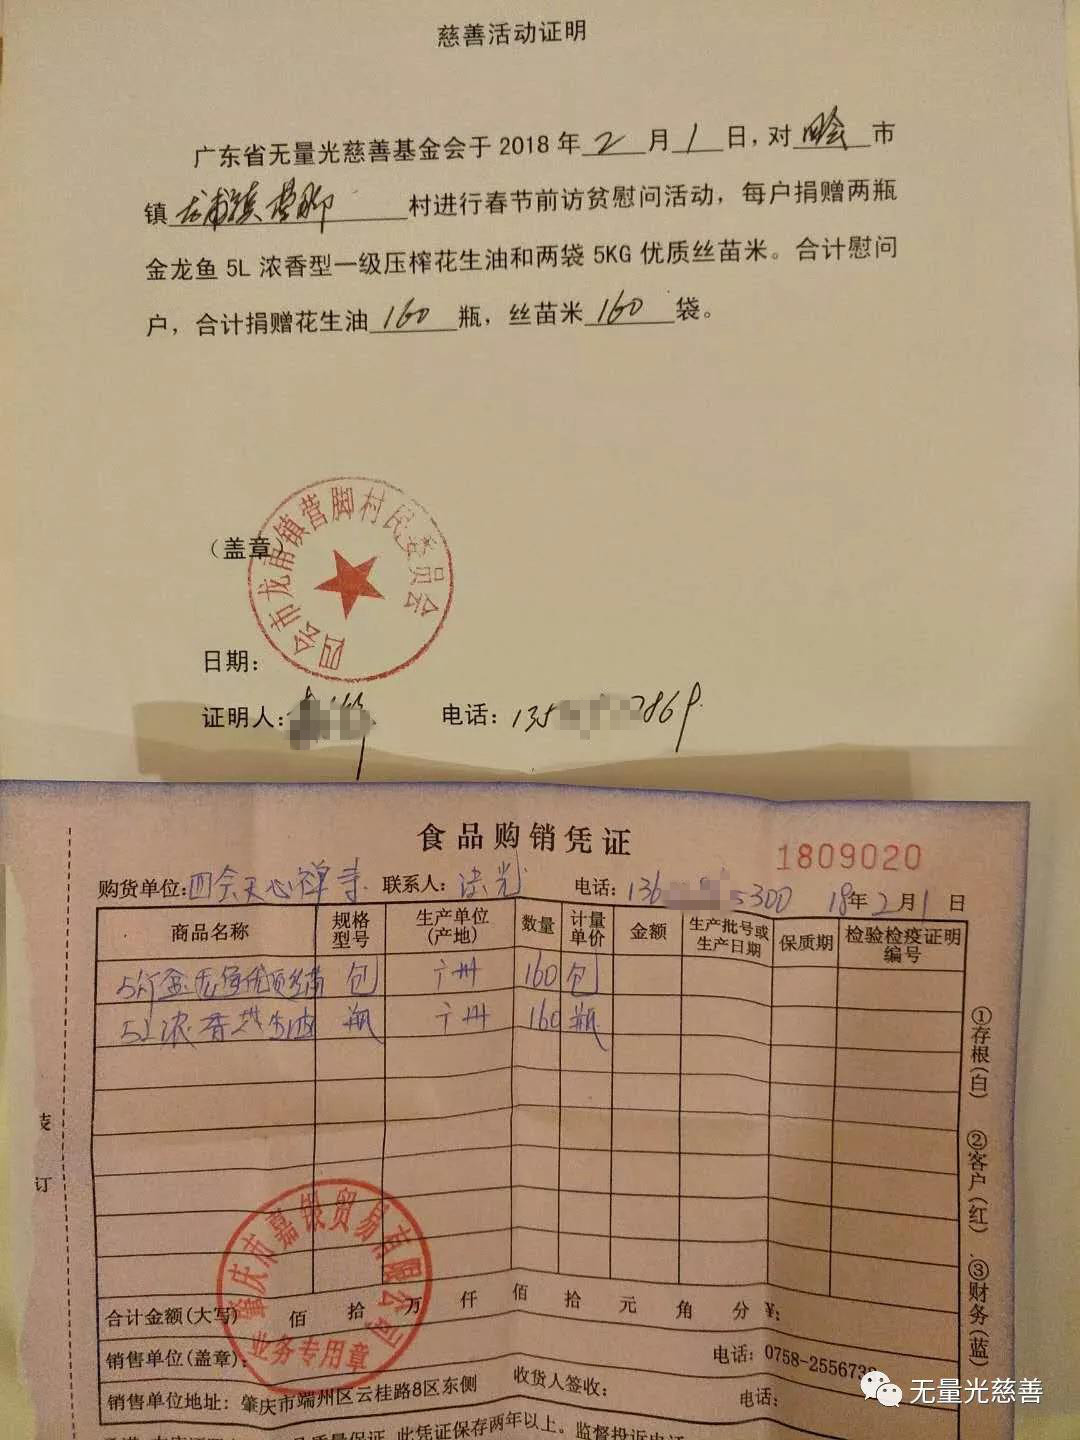 慈善活动证明
广东省无量光慈善基金会于 2018 年 2 月 1 日，对 四会 市
镇 龙甫镇营脚 村进行春节前访贫慰问活动，每户捐赠两瓶
金龙鱼 5L 浓香型一级压榨花生油和两袋 5KG 优质丝苗米。合计慰问
户，合计捐赠花生油 160 瓶，丝苗米 160 袋。
四会市龙甫镇营脚村民委员会
（盖章）
日期：
证明人： 电话：135 869
食品购销凭证
1809020
购货单位：四会天心禅寺 联系人：法光 电话：136 5300 18年2月1日
商品名称 规格型号 生产单位(产地) 数量 计量单价 金额 生产批号或生产日期 保质期 检验检疫证明编号
包 广州 160 包
5L浓香花生油 瓶 广州 160 瓶
①存根(白) ②客户(红) ③财务(蓝)
装订
肇庆市嘉银贸易有限公司
业务专用章
合计金额(大写) 佰 拾 万 仟 佰 拾 元 角 分 ¥：
销售单位(盖章)： 电话：0758-255673
销售单位地址：肇庆市端州区云桂路8区东侧 收货人签收： 电话：
质量保证，此凭证保存两年以上。监督投诉电话
无量光慈善